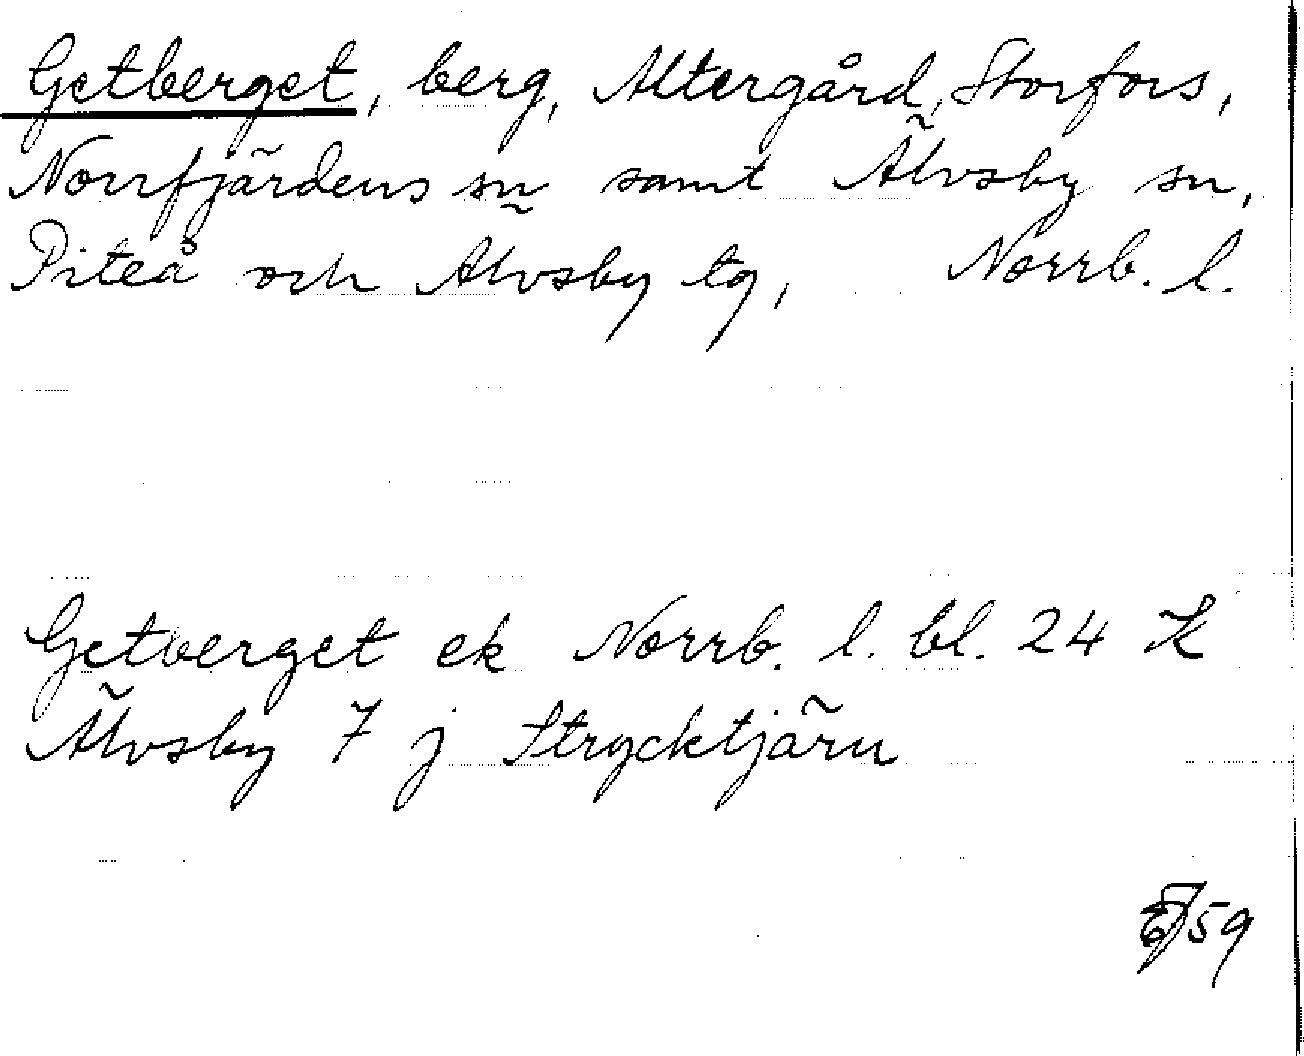 Getberget, berg, Altergård, Storfors,
Norrfjärdens sn samt Älvsby sn,
Piteå och Älvsby tg, Norrb. l.
Getberget ek Norrb. l. bl. 24 K
Älvsby 7 j Strycktjärn
59